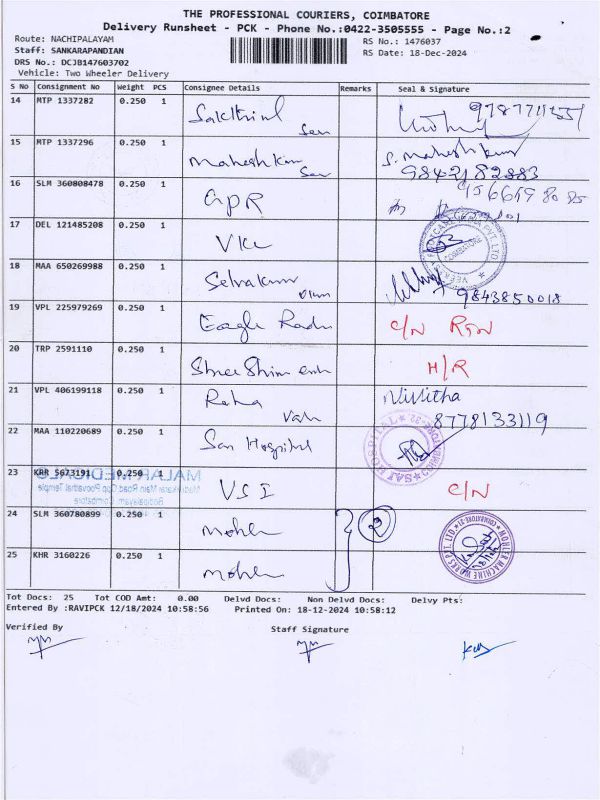 THE PROFESSIONAL COURIERS, COIMBATORE
Delivery Runsheet - PCK - Phone No.:0422-3505555 - Page No.:2
Route: NACHIPALAYAM
RS No.: 1476037
Staff: SANKARAPANDIAN
RS Date: 18-Dec-2024
DRS No.: DCJB147603702
Vehicle: Two Wheeler Delivery
S No Consignment No Weight PCS Consignee Details Remarks Seal & Signature
14 MTP 1337282 0.250 1 Sakthivel
15 MTP 1337296 0.250 1 Maheshkum S. Maheshkumar
9842182883
16 SLM 360808478 0.250 1 GPR
17 DEL 121485208 0.250 1 VKC
18 MAA 650269988 0.250 1 Selvakum
9843850018
19 VPL 225979269 0.250 1 Eagle C/N RTN
20 TRP 2591110 0.250 1 Shree H/R
21 VPL 406199118 0.250 1 Nivitha
8778133119
22 MAA 110220689 0.250 1 San Hospital
SAI HOSPITAL
23 KRR 5673191 0.250 1 VSI C/N
MALAR MEDICALS
24 SLM 360780899 0.250 1 mohler 2
25 KHR 3160226 0.250 1 mohler
MOHLER MACHINE WORKS P. LTD.
Tot Docs: 25 Tot COD Amt: 0.00 Delvd Docs: Non Delvd Docs: Delvy Pts:
Entered By :RAVIPCK 12/18/2024 10:58:56 Printed On: 18-12-2024 10:58:12
Verified By Staff Signature